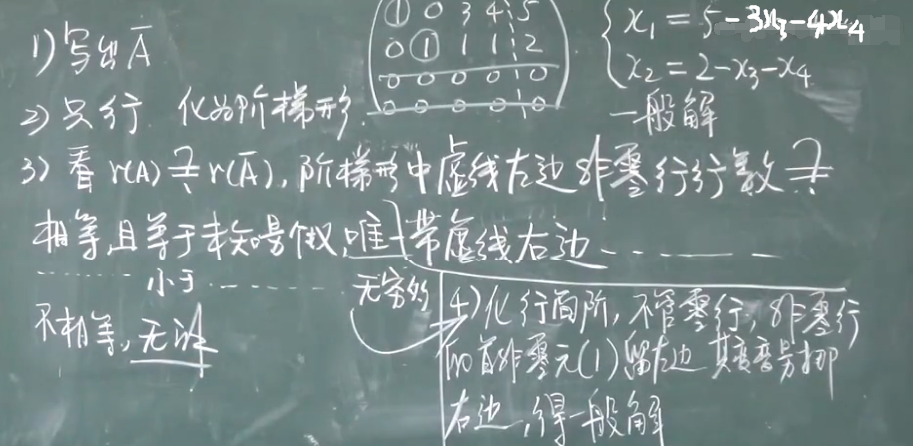 1) 写出Ā
① 0 3 4 5
0 ① 1 1 2
0 0 0 0 0
0 0 0 0 0
x₁ = 5 - 3x₃ - 4x₄
x₂ = 2 - x₃ - x₄
一般解
2) 只行 化为阶梯形.
3) 看 r(A) ≟ r(Ā), 阶梯形中虚线左边非零行行数 ≟
相等,且等于未知量个数,唯一 带虚线右边 ------
------ 小于 ------ 无穷多
不相等,无解
4) 化行简阶, 不管零行, 非零行
的首非零元(1)留左边 其变号挪
右边,得一般解